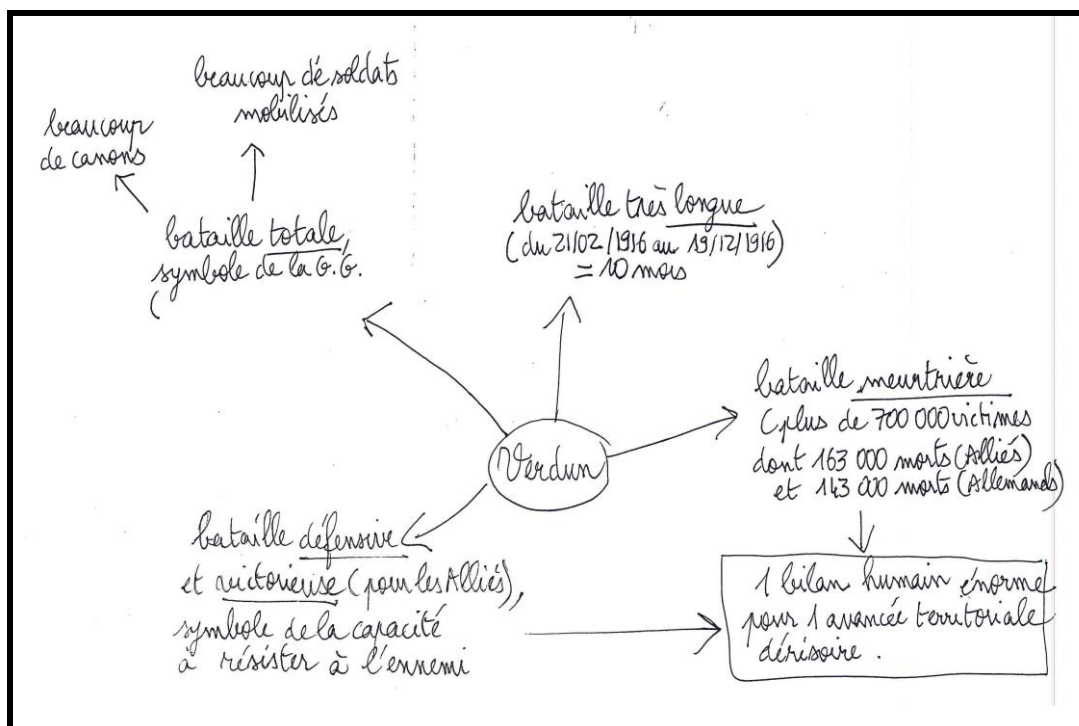 beaucoup de soldats
mobilisés
beaucoup
de canons
bataille totale,
symbole de la G.G.
(
bataille très longue
(du 21/02/1916 au 19/12/1916)
= 10 mois
bataille meurtrière
(plus de 700 000 victimes
dont 163 000 morts (Alliés)
et 143 000 morts (Allemands)
Verdun
bataille défensive
et victorieuse (pour les Alliés),
symbole de la capacité
à résister à l'ennemi
1 bilan humain énorme
pour 1 avancée territoriale
dérisoire.